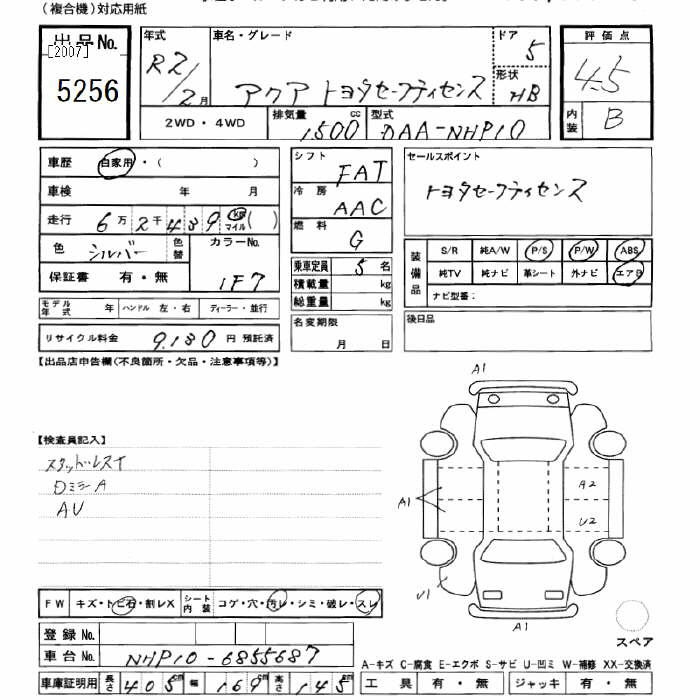 (複合機)対応用紙
出品No.
[2007]
5256
年式
R2/2月
車名・グレード
アクア トヨタセーフティセンス
ドア
5
形状
HB
評価点
4.5
内装
B
2WD・4WD
排気量
1500 cc
型式
DAA-NHP10
車歴 自家用・( )
車検 年 月
走行 6万2千439 km マイル ( )
色 シルバー 色替
カラーNo.
1F7
保証書 有・無
モデル年式 年 ハンドル 左・右 ディーラー・並行
リサイクル料金 9,130円 預託済
シフト
FAT
冷房
AAC
燃料
G
乗車定員 5名
積載量 kg
総重量 kg
名変期限
月 日
セールスポイント
トヨタセーフティセンス
装備品
S/R 純A/W P/S P/W ABS
純TV 純ナビ 革シート 外ナビ エアB
ナビ型番:
後日品
【出品店申告欄(不良箇所・欠品・注意事項等)】
【検査員記入】
スタットレスナ
ロミラーA
AU
A1
A1
A2
U2
U1
A1
スペア
FW キズ・トビ石・割レX シート内装 コゲ・穴・汚レ・シミ・破レ・スレ
登録No.
車台No. NHP10-6855687
車庫証明用 長さ 405cm 幅 169cm 高さ 145cm
A-キズ C-腐食 E-エクボ S-サビ U-凹ミ W-補修 XX-交換済
工具 有・無 ジャッキ 有・無